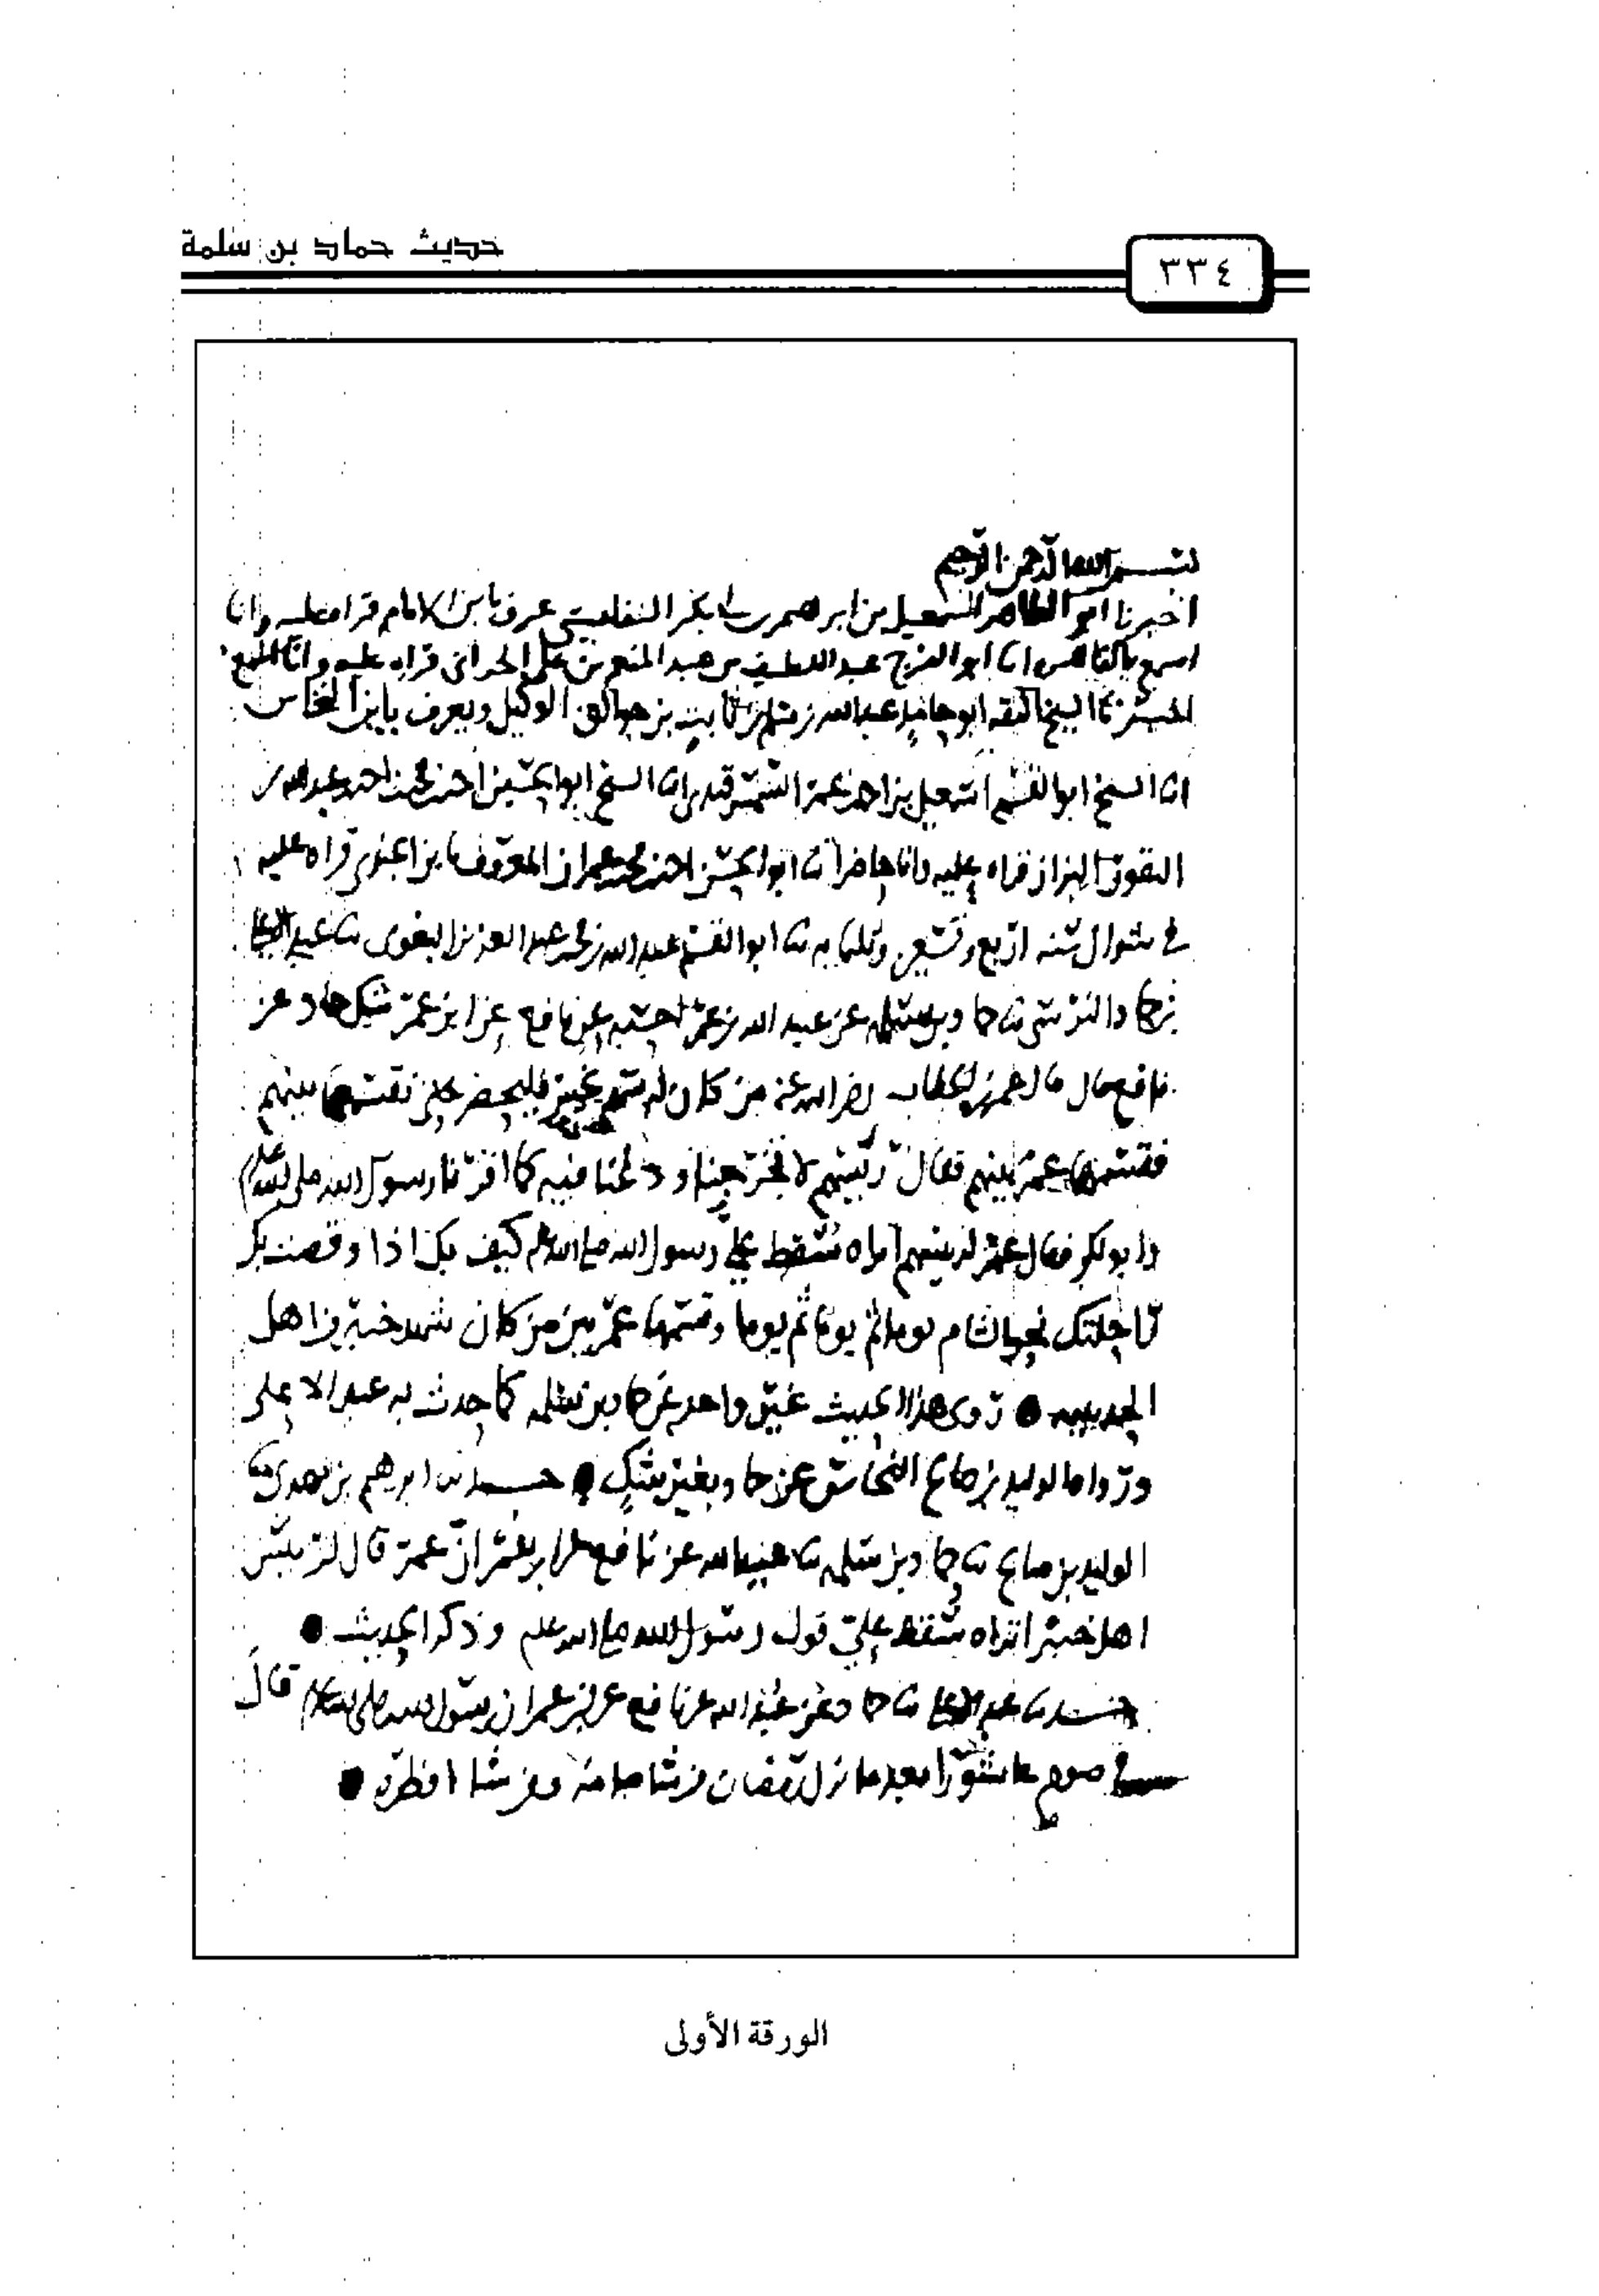 حديث حماد بن سلمة
٣٣٤
بسم الله الرحمن الرحيم
اخبرنا ابو الطاهر اسمعيل بن ابرهيم بن ابي بكر التفليسي عرف بابن الامام قراه عليه وانا
اسمع بالقاهره انا ابو الفرج عبد اللطيف بن عبد المنعم بن علي الحراني قراه عليه وانا اسمع
انا الشيخ الثقه ابو حامد عبد الله بن مسلم بن ثابت بن جوالق الوكيل ويعرف بابن النخاس
انا الشيخ ابو القسم اسمعيل بن احمد بن عمر السمرقندي انا الشيخ ابو الحسين احمد بن محمد بن احمد بن عبد الله بن
النقور البزاز قراه عليه وانا حاضر انا ابو الحسن احمد بن محمد بن عمران المعروف بابن الجندي قراه عليه
في شوال سنه اربع وتسعين وثلثمايه ثنا ابو القسم عبد الله بن محمد بن عبد العزيز البغوي ثنا عبد الاعلى
بن حماد النرسي ثنا حماد بن سلمه عن عبيد الله بن عمر احسبه عن نافع عن ابن عمر شك حماد عن
نافع قال قال عمر بن الخطاب رضي الله عنه من كان له سهم بخيبر فليحضر حتى نقسمها بينهم
فقسمها عمر بينهم فقال رئيسهم لا تخرجنا ودعنا فيه كما اقرنا رسول الله صلى الله عليه
وابو بكر فقال عمر لرئيسهم اتراه سقط علي قول رسول الله صلى الله عليه وسلم كيف بك اذا وقصت بك
راحلتك نحو الشام يوما ثم يوما ثم يوما وقسمها عمر بين من كان شهد خيبر من اهل
الحديبيه روى هذا الحديث غير واحد عن حماد بن سلمه كما حدث به عبد الاعلى
ورواه الوليد بن صالح النخاس عن حماد بغير شك حدثنا ابرهيم بن مهدي ثنا
الوليد بن صالح ثنا حماد بن سلمه ثنا عبيد الله عن نافع عن ابن عمر ان عمر قال لرئيس
اهل خيبر اتراه سقط علي قول رسول الله صلى الله عليه وذكر الحديث
حدثنا عبد الاعلى ثنا حماد عن عبيد الله عن نافع عن ابن عمر ان رسول الله صلى الله عليه وسلم قال
في صوم عاشورا بعدما نزل رمضان من شا صامه ومن شا افطره
الورقة الأولى